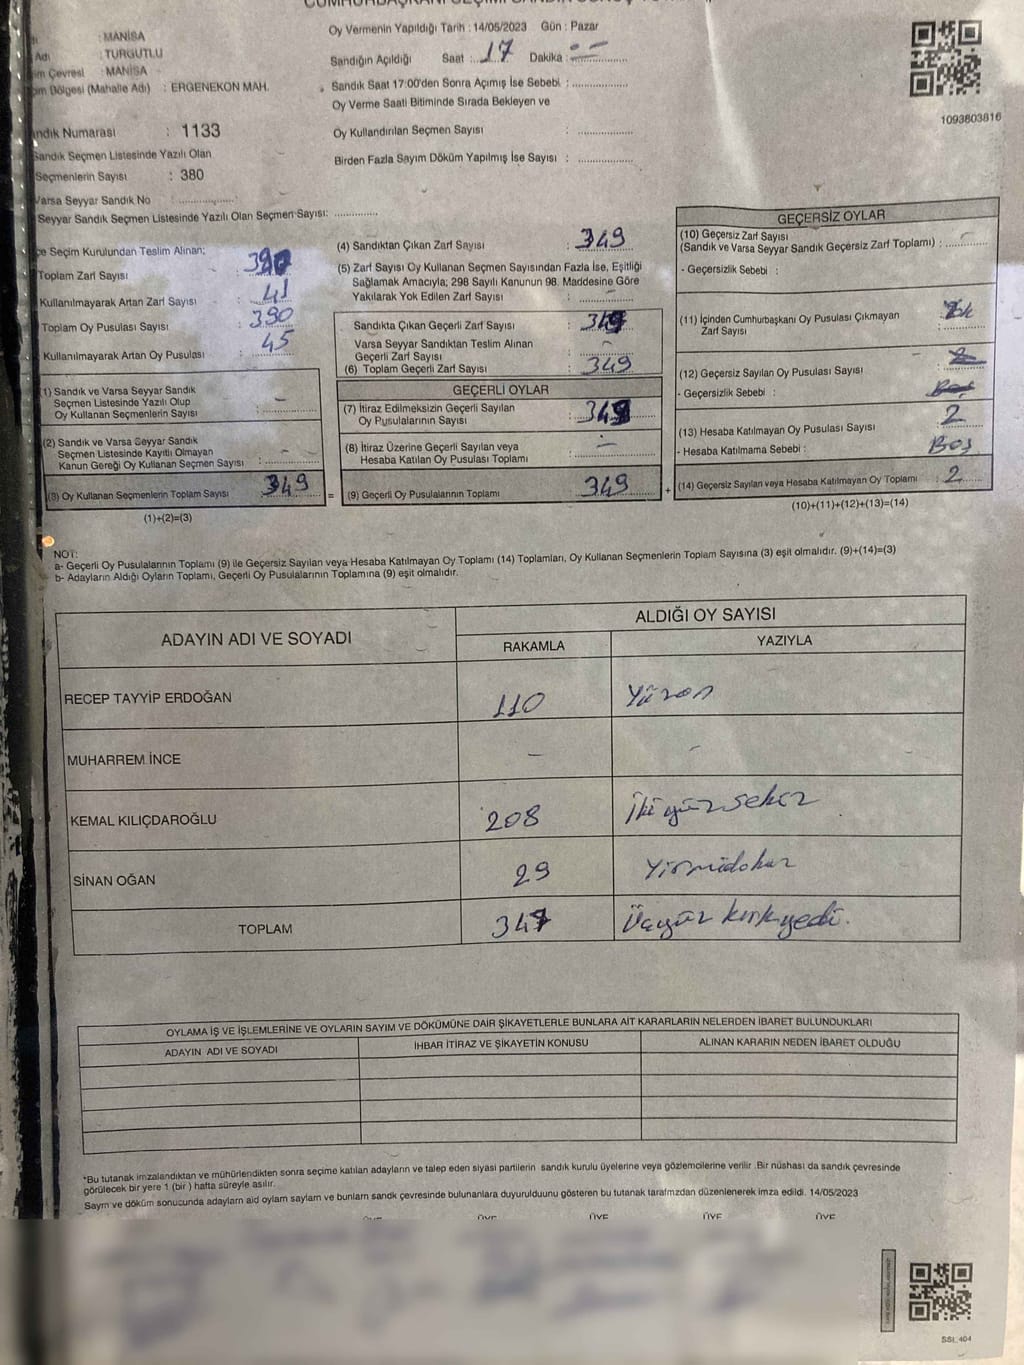 : MANİSA
Adı : TURGUTLU
im Çevresi : MANİSA
Bölgesi (Mahalle Adı) : ERGENEKON MAH.
andık Numarası : 1133
Sandık Seçmen Listesinde Yazılı Olan
Seçmenlerin Sayısı : 380
Varsa Seyyar Sandık No
Seyyar Sandık Seçmen Listesinde Yazılı Olan Seçmen Sayısı:
Oy Vermenin Yapıldığı Tarih : 14/05/2023 Gün : Pazar
Sandığın Açıldığı Saat : 17 Dakika : --
Sandık Saat 17:00'den Sonra Açımış İse Sebebi :
Oy Verme Saati Bitiminde Sırada Bekleyen ve
Oy Kullandırılan Seçmen Sayısı :
Birden Fazla Sayım Döküm Yapılmış İse Sayısı :
1093803816
çe Seçim Kurulundan Teslim Alınan:
Toplam Zarf Sayısı : 390
Kullanılmayarak Artan Zarf Sayısı : 41
Toplam Oy Pusulası Sayısı : 390
Kullanılmayarak Artan Oy Pusulası : 45
(1) Sandık ve Varsa Seyyar Sandık
Seçmen Listesinde Yazılı Olup
Oy Kullanan Seçmenlerin Sayısı : -
(2) Sandık ve Varsa Seyyar Sandık
Seçmen Listesinde Kayıtlı Olmayan
Kanun Gereği Oy Kullanan Seçmen Sayısı : -
(3) Oy Kullanan Seçmenlerin Toplam Sayısı : 349
(1)+(2)=(3)
(4) Sandıktan Çıkan Zarf Sayısı : 349
(5) Zarf Sayısı Oy Kullanan Seçmen Sayısından Fazla İse, Eşitliği
Sağlamak Amacıyla; 298 Sayılı Kanunun 98. Maddesine Göre
Yakılarak Yok Edilen Zarf Sayısı :
Sandıkta Çıkan Geçerli Zarf Sayısı : 349
Varsa Seyyar Sandıktan Teslim Alınan
Geçerli Zarf Sayısı : -
(6) Toplam Geçerli Zarf Sayısı : 349
GEÇERLİ OYLAR
(7) İtiraz Edilmeksizin Geçerli Sayılan
Oy Pusulalarının Sayısı : 349
(8) İtiraz Üzerine Geçerli Sayılan veya
Hesaba Katılan Oy Pusulası Toplamı : -
= (9) Geçerli Oy Pusulalarının Toplamı : 349
GEÇERSİZ OYLAR
(10) Geçersiz Zarf Sayısı
(Sandık ve Varsa Seyyar Sandık Geçersiz Zarf Toplamı) : -
- Geçersizlik Sebebi :
(11) İçinden Cumhurbaşkanı Oy Pusulası Çıkmayan
Zarf Sayısı :
(12) Geçersiz Sayılan Oy Pusulası Sayısı : 2
- Geçersizlik Sebebi : Boş
(13) Hesaba Katılmayan Oy Pusulası Sayısı : 2
- Hesaba Katılmama Sebebi : Boş
+ (14) Geçersiz Sayılan veya Hesaba Katılmayan Oy Toplamı : 2
(10)+(11)+(12)+(13)=(14)
NOT:
a- Geçerli Oy Pusulalarının Toplamı (9) ile Geçersiz Sayılan veya Hesaba Katılmayan Oy Toplamı (14) Toplamları, Oy Kullanan Seçmenlerin Toplam Sayısına (3) eşit olmalıdır. (9)+(14)=(3)
b- Adayların Aldığı Oyların Toplamı, Geçerli Oy Pusulalarının Toplamına (9) eşit olmalıdır.
ADAYIN ADI VE SOYADI ALDIĞI OY SAYISI
RAKAMLA YAZIYLA
RECEP TAYYİP ERDOĞAN 110 Yüzon
MUHARREM İNCE - -
KEMAL KILIÇDAROĞLU 208 İkiyüzsekiz
SİNAN OĞAN 29 Yirmidokuz
TOPLAM 347 Üçyüz kırkyedi.
OYLAMA İŞ VE İŞLEMLERİNE VE OYLARIN SAYIM VE DÖKÜMÜNE DAİR ŞİKAYETLERLE BUNLARA AİT KARARLARIN NELERDEN İBARET BULUNDUKLARI
ADAYIN ADI VE SOYADI İHBAR İTİRAZ VE ŞİKAYETİN KONUSU ALINAN KARARIN NEDEN İBARET OLDUĞU
*Bu tutanak imzalandıktan ve mühürlendikten sonra seçime katılan adayların ve talep eden siyasi partilerin sandık kurulu üyelerine veya gözlemcilerine verilir .Bir nüshası da sandık çevresinde
görülecek bir yere 1 (bir ) hafta süreyle asılır.
Sayım ve döküm sonucunda adayların aid oylam saylam ve bunlarn sandk çevresinde bulunanlara duyurulduunu gösteren bu tutanak tarafmzdan düzenlenerek imza edildi. 14/05/2023
ÜYE ÜYE ÜYE ÜYE ÜYE
SSI. 404